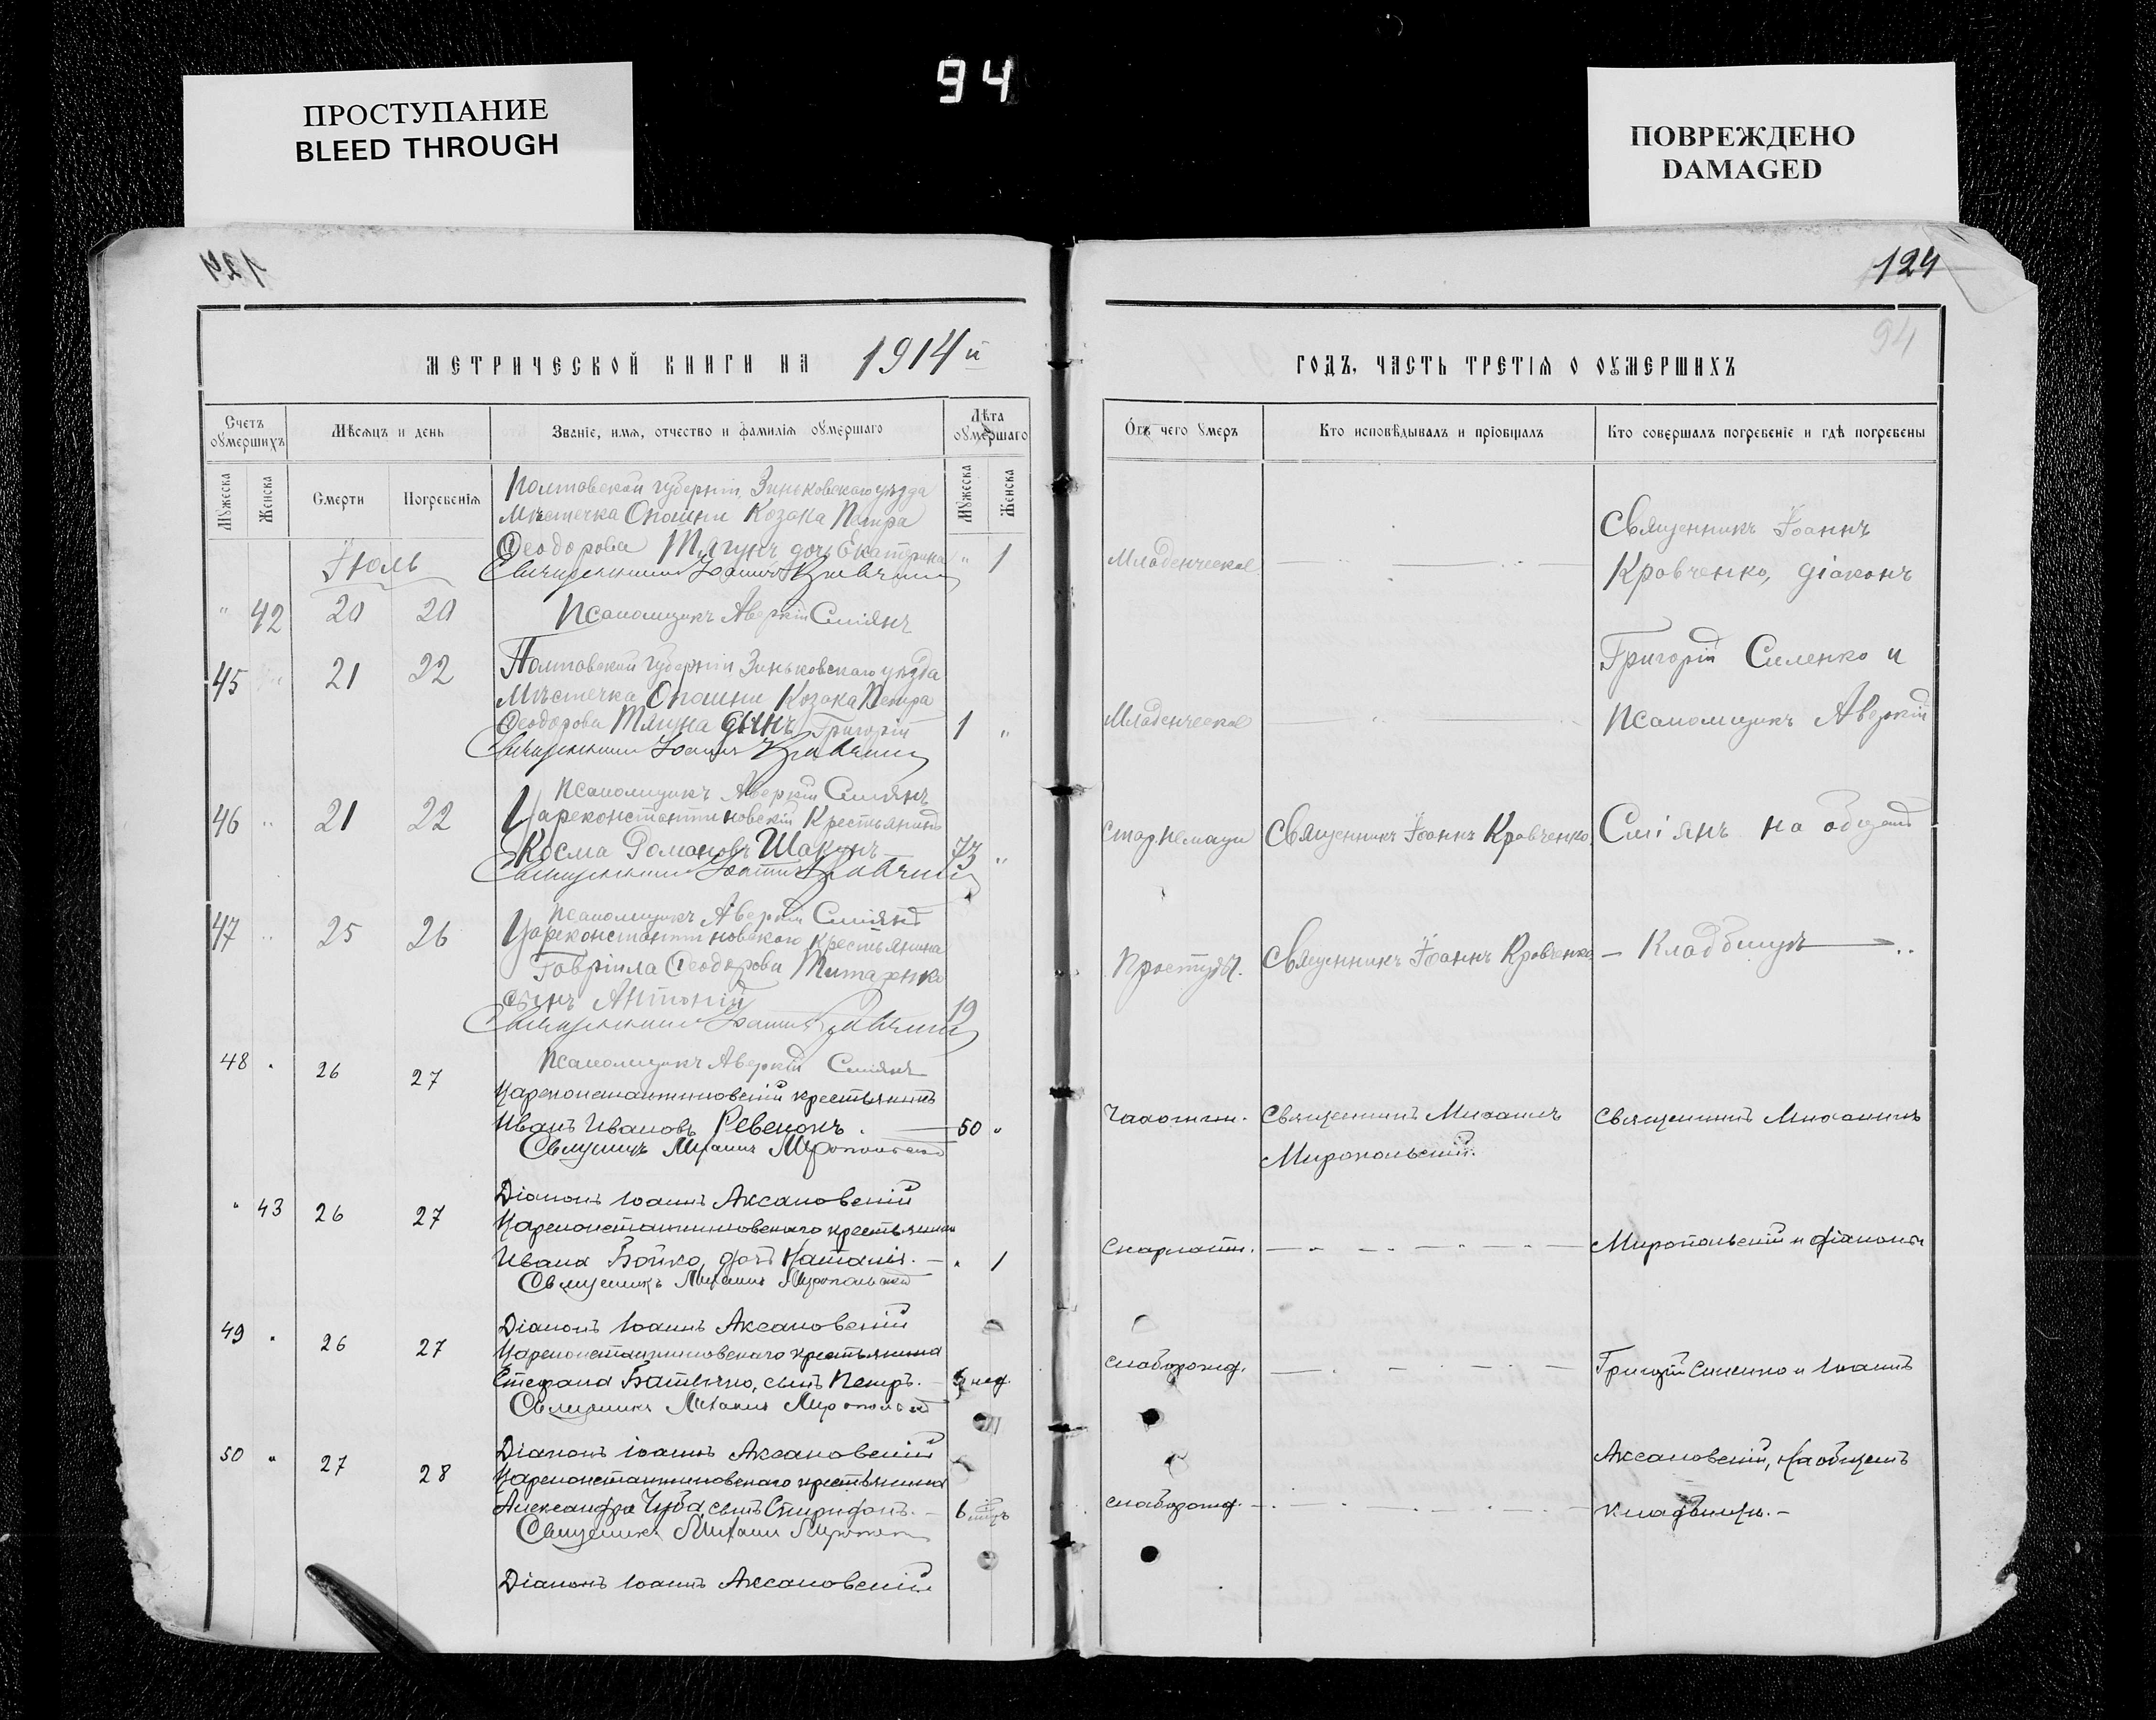 94
ПРОСТУПАНИЕ
BLEED THROUGH
ПОВРЕЖДЕНО
DAMAGED
124
94
МЕТРИЧЕСКОЙ КНИГИ НА 1914 й
Счетъ оумершихъ
Мѣсяцъ и день
Званіе, имя, отчество и фамилія оумершаго
Лѣта оумершаго
Мужеска
Женска
Смерти
Погребенія
Мужеска
Женска
Полтавской губерніи, Зиньковскаго уѣзда
Мѣстечка Опошни Козака Петра
Ѳеодорова Тягунъ дочь Екатерина " 1
Іюль
Священникъ Іоаннъ Кравченко
" 42 20 20
Псаломщикъ Аверкій Сміянъ
45 " 21 22
Полтавской губерніи Зиньковскаго уѣзда
Мѣстечка Опошни Козака Петра
Ѳеодорова Тягуна сынъ Григорій 1 "
Священникъ Іоаннъ Кравченко
Псаломщикъ Аверкій Сміянъ
46 " 21 22
Цареконстантиновскій Крестьянинъ
Косма Романовъ Шакунъ 73 "
Священникъ Іоаннъ Кравченко
Псаломщикъ Аверкій Сміянъ
47 " 25 26
Цареконстантиновскаго Крестьянина
Гавріила Ѳеодорова Титаренко
сынъ Антоній 19
Священникъ Іоаннъ Кравченко
Псаломщикъ Аверкій Сміянъ
48 " 26 27
Цареконстантиновскій крестьянинъ
Иванъ Ивановъ Ревенокъ. 50 "
Священникъ Михаилъ Миропольскій
Діаконъ Іоаннъ Аксановскій
" 43 26 27
Цареконстантиновскаго крестьянина
Ивана Бойко, дочь Наталія. - " 1
Священникъ Михаилъ Миропольскій
Діаконъ Іоаннъ Аксановскій
49 " 26 27
Цареконстантиновскаго крестьянина
Стефана сынъ Петръ. - нед.
Священникъ Михаилъ Миропольскій
Діаконъ Іоаннъ Аксановскій
50 " 27 28
Цареконстантиновскаго крестьянина
Александра Чуба, сынъ Спиридонъ. - 6
Священникъ Михаилъ
Діаконъ Іоаннъ Аксановскій
124
ГОДЪ, ЧАСТЬ ТРЕТІЯ О ОУМЕРШИХЪ
Отъ чего умеръ
Кто исповѣдывалъ и пріобщалъ
Кто совершалъ погребеніе и гдѣ погребены
Священникъ Іоаннъ
Младенческой
Кравченко, діаконъ
Григорій Силенко и
Младенческой
Псаломщикъ Аверкій
Священникъ Іоаннъ Кравченко
Сміянъ на общемъ
Простуды.
Священникъ Іоаннъ Кравченко
Кладбищѣ
Чахотки.
Священникъ Михаилъ
Миропольскій.
Священникъ Михаилъ
Скарлат.
Миропольскій и діаконы
слаборожд.
Григорій Силенко и Іоаннъ
Аксановскій, на общемъ
слаборожд.
кладбищѣ. -